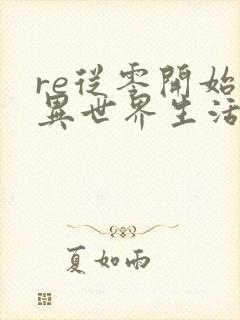 re從零開始
異世界生活
夏如雨